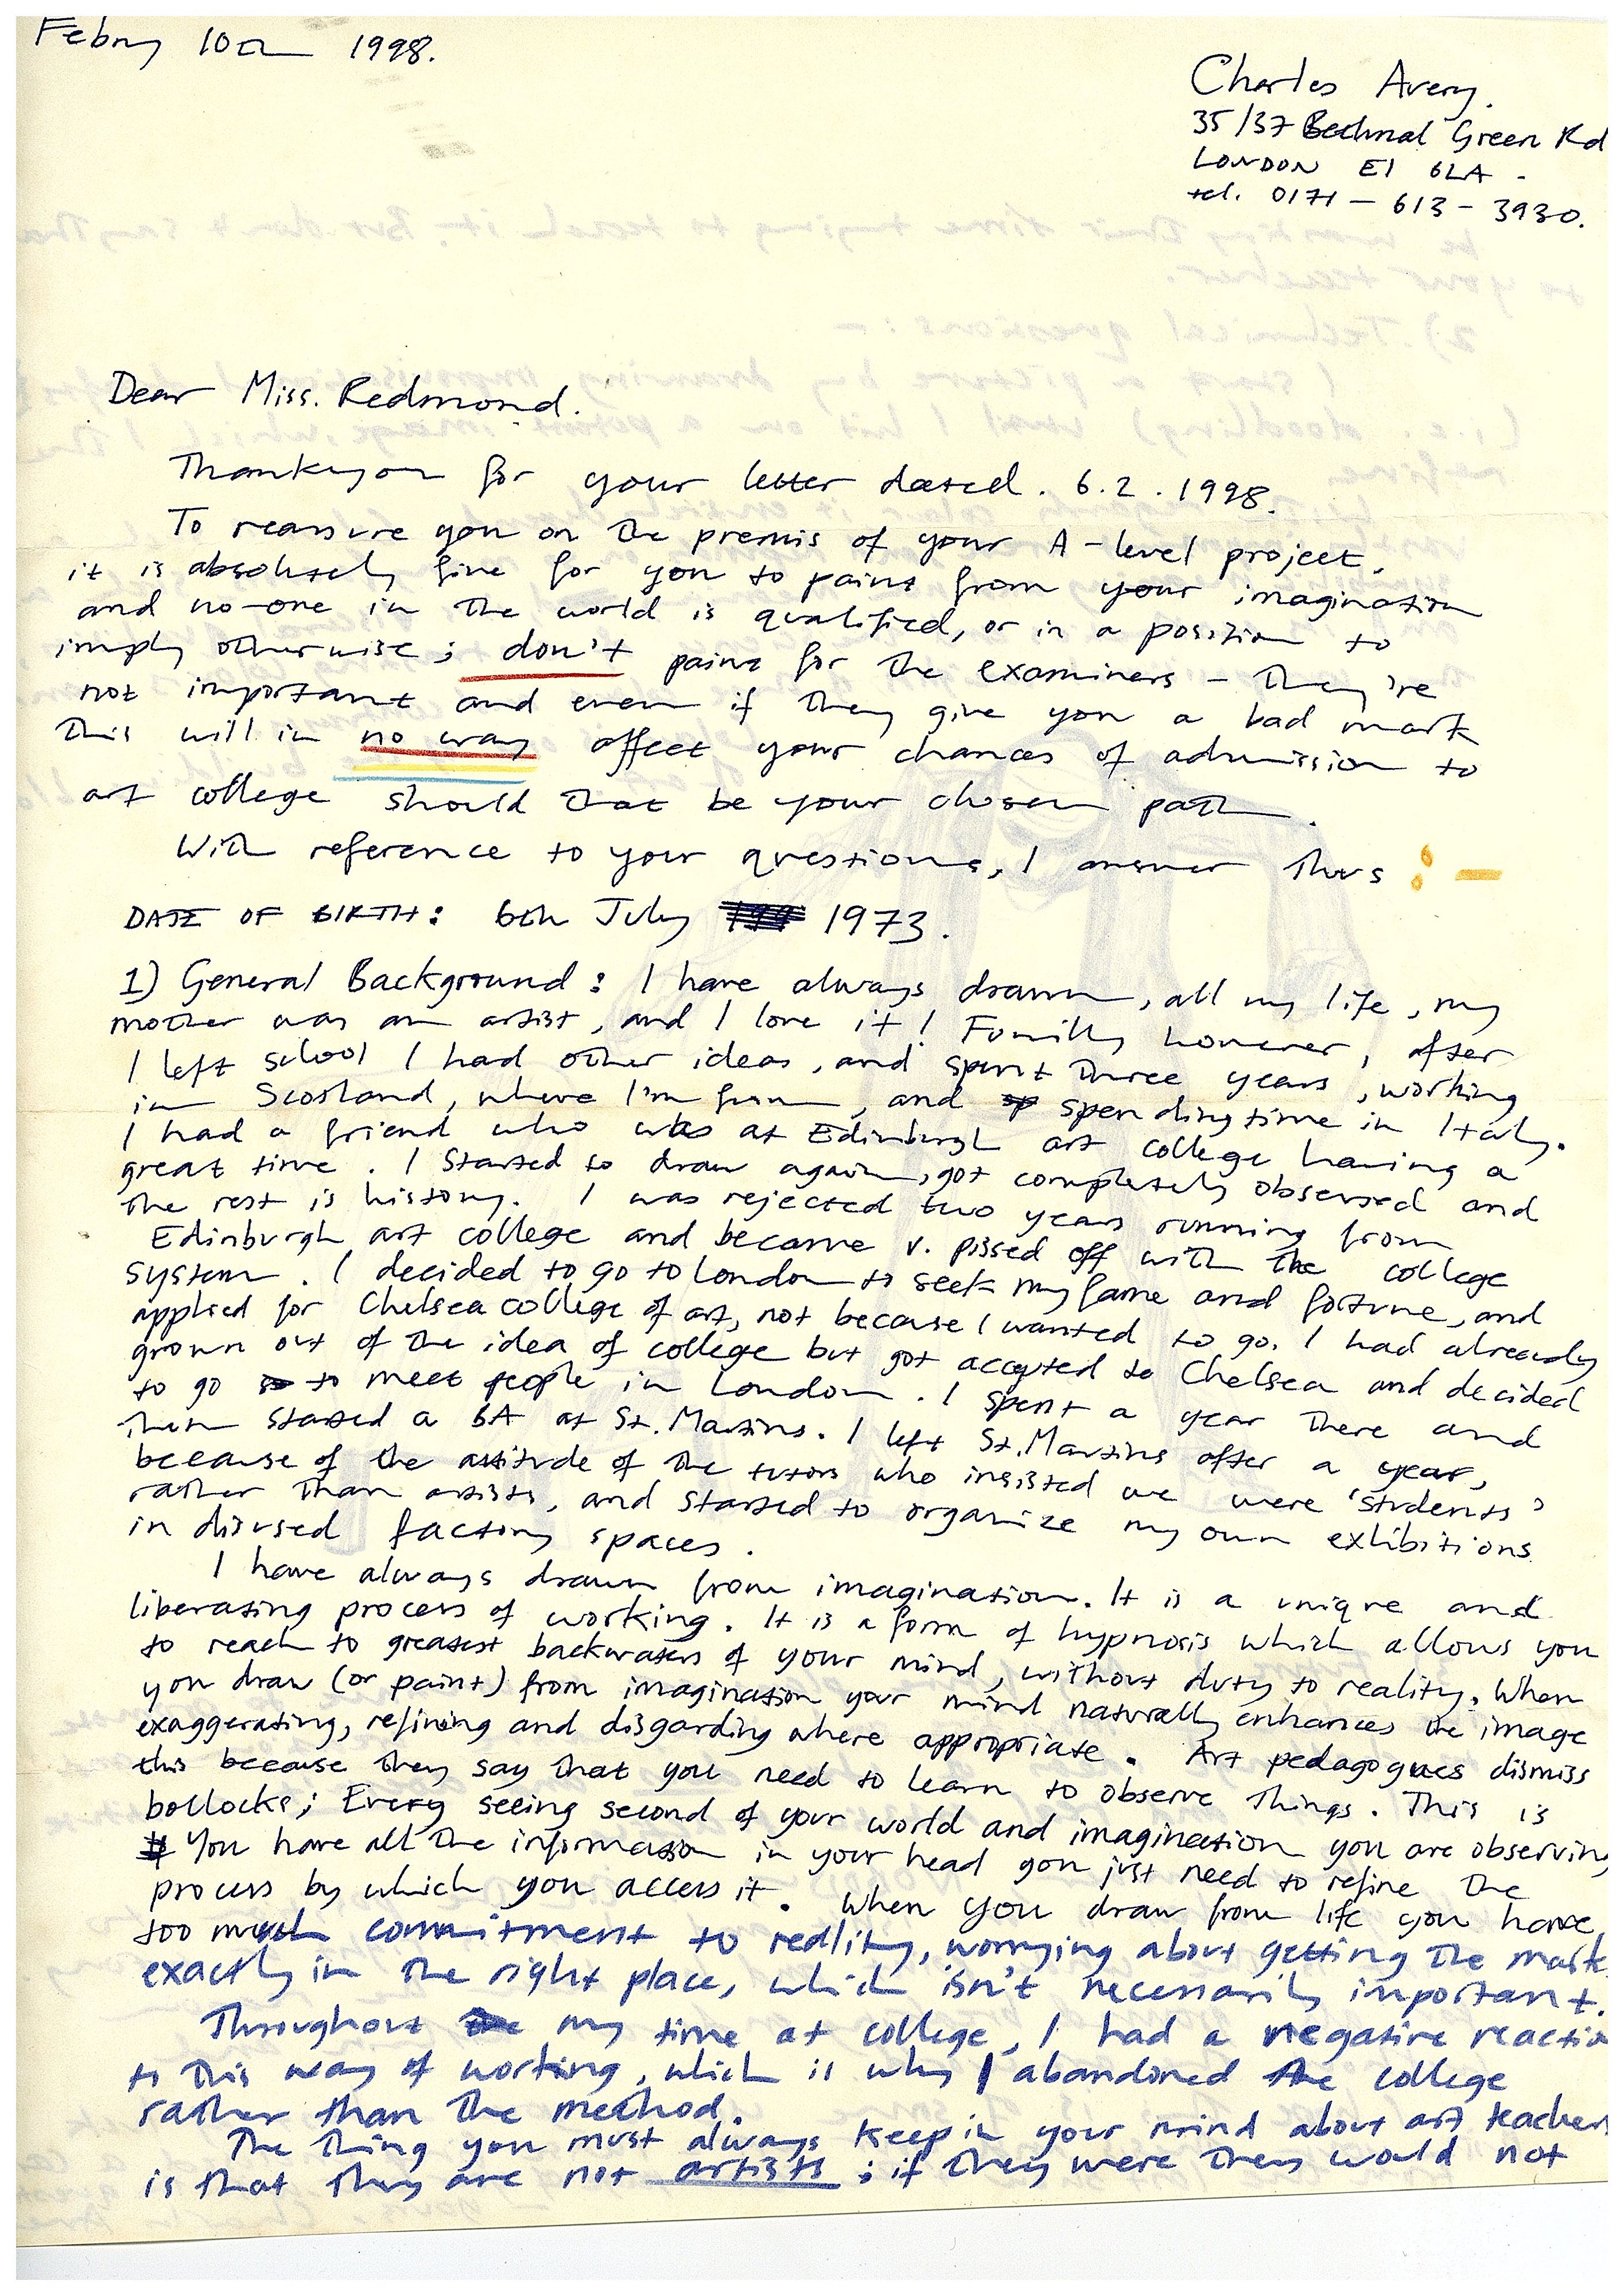 Febry 10th 1998.
Charles Avery.
35/37 Bethnal Green Rd
LONDON E1 6LA -
tel. 0171 - 613 - 3930.
Dear Miss. Redmond.
Thankyou for your letter dated. 6.2.1998.
To reassure you on the premis of your A-level project,
it is absolutely fine for you to paint from your imagination
and no-one in the world is qualified, or in a position to
imply otherwise; don't paint for the examiners - they're
not important and even if they give you a bad mark
this will in no way affect your chances of admission to
art college should that be your chosen path.
With reference to your questions, I answer thus :-
DATE OF BIRTH: 6th July 1973.
1) General Background: I have always drawn, all my life, my
mother was an artist, and I love it! Funilly however, after
I left school I had other ideas, and spent three years, working
in Scotland, where I'm from, and spending time in Italy.
I had a friend who was at Edinburgh art college having a
great time. I started to draw again, got completely obsessed and
the rest is history. I was rejected two years running from
Edinburgh art college and became v. pissed off with the college
system. I decided to go to London to seek my fame and fortune, and
applied for Chelsea college of art, not because I wanted to go, I had already
grown out of the idea of college but got accepted to Chelsea and decided
to go to meet people in London. I spent a year there and
then started a BA at St. Martins. I left St. Martins after a year,
because of the attitude of the tutors who insisted we were 'students'
rather than artists, and started to organize my own exhibitions
in disused factory spaces.
I have always drawn from imagination. It is a unique and
liberating process of working. It is a form of hypnosis which allows you
to reach to greatest backwaters of your mind, without duty to reality. When
you draw (or paint) from imagination your mind naturally enhances the image
exaggerating, refining and disgarding where appropriate. Art pedagogues dismiss
this because they say that you need to learn to observe things. This is
bollocks; Every seeing second of your world and imagination you are observing
You have all the information in your head you just need to refine the
process by which you access it. When you draw from life you have
too much commitment to reality, worrying about getting the mark
exactly in the right place, which isn't necessarily important.
Throughout my time at college, I had a negative reactio
to this way of working, which is why I abandoned the college
rather than the method.
The thing you must always keep in your mind about art teachers
is that they are not artists; if they were they would not